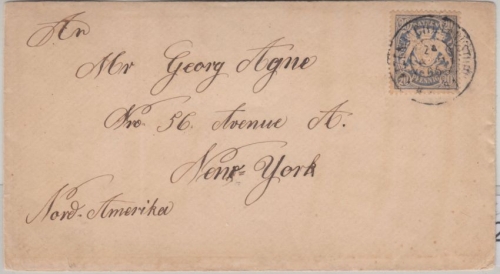 An
Mr Georg Agne
Nro. 56. Avenue A.
New-York
Nord-Amerika